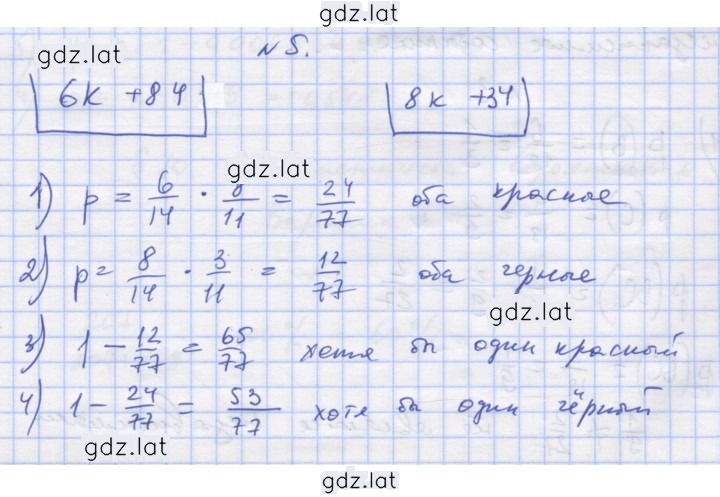 gdz.lat
gdz.lat
№5.
6к +8ч
8к +3ч
gdz.lat
1) p = 6/14 · 8/11 = 24/77 оба красные
2) p = 8/14 · 3/11 = 12/77 оба черные
gdz.lat
3) 1 - 12/77 = 65/77 хотя бы один красный
4) 1 - 24/77 = 53/77 хотя бы один чёрный
gdz.lat
gdz.lat